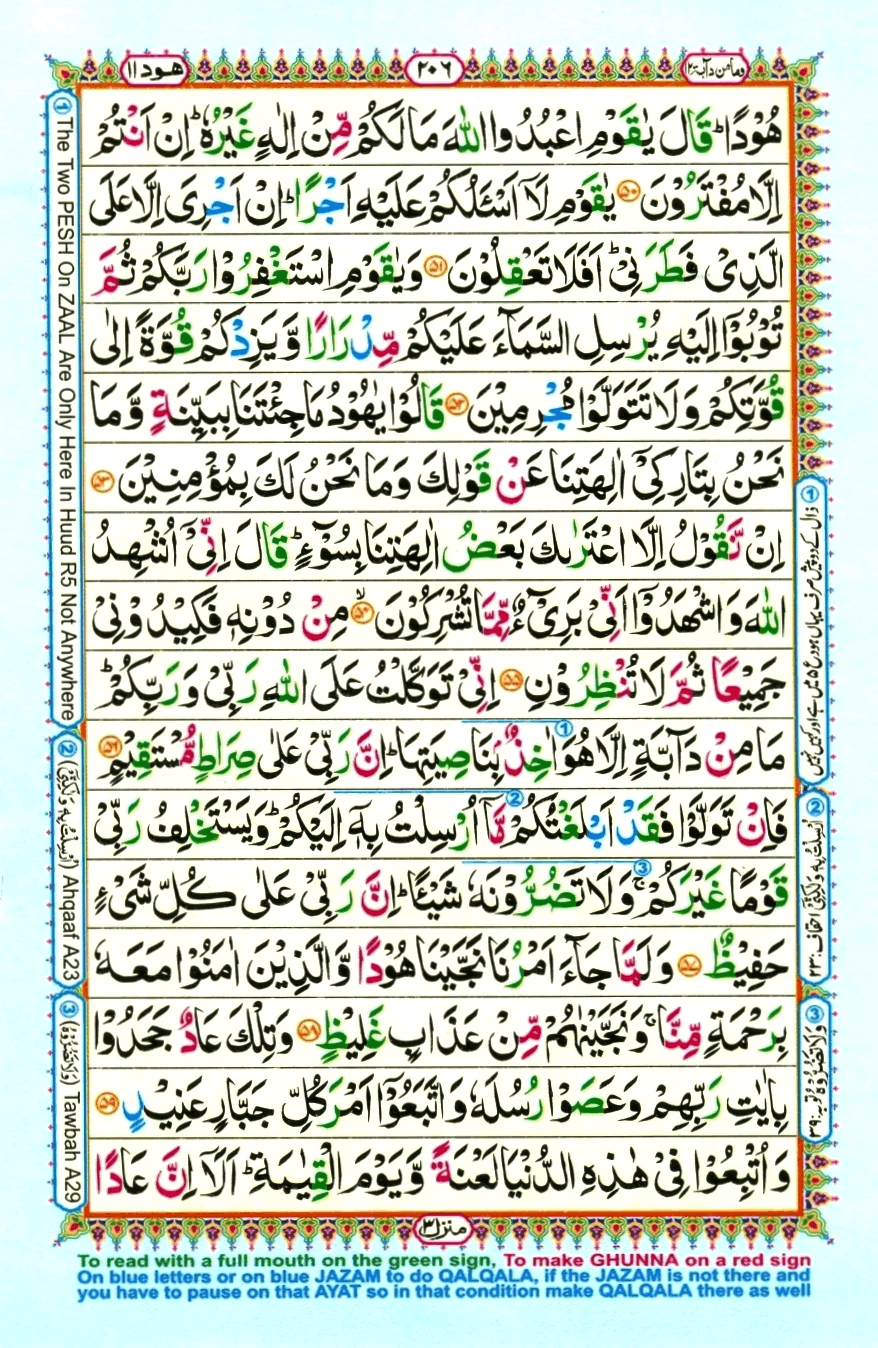 وما من دآبة ١٢
٢٠٦
هود ١١
هُوۡدًا ؕ قَالَ يٰقَوۡمِ اعۡبُدُوا اللّٰهَ مَا لَكُمۡ مِّنۡ اِلٰهٍ غَيۡرُهٗ ؕ اِنۡ اَنۡتُمۡ
اِلَّا مُفۡتَرُوۡنَ ‏﴿۵۰﴾‏ يٰقَوۡمِ لَاۤ اَسۡـَٔلُكُمۡ عَلَيۡهِ اَجۡرًا ؕ اِنۡ اَجۡرِىَ اِلَّا عَلَى
الَّذِىۡ فَطَرَنِىۡ ؕ اَفَلَا تَعۡقِلُوۡنَ ‏﴿۵۱﴾‏ وَيٰقَوۡمِ اسۡتَغۡفِرُوۡا رَبَّكُمۡ ثُمَّ
تُوۡبُوۡۤا اِلَيۡهِ يُرۡسِلِ السَّمَآءَ عَلَيۡكُمۡ مِّدۡرَارًا وَّيَزِدۡكُمۡ قُوَّةً اِلٰى
قُوَّتِكُمۡ وَلَا تَتَوَلَّوۡا مُجۡرِمِيۡنَ ‏﴿۵۲﴾‏ قَالُوۡا يٰهُوۡدُ مَا جِئۡتَنَا بِبَيِّنَةٍ وَّمَا
نَحۡنُ بِتَارِكِىۡۤ اٰلِهَتِنَا عَنۡ قَوۡلِكَ وَمَا نَحۡنُ لَكَ بِمُؤۡمِنِيۡنَ ‏﴿۵۳﴾‏
اِنۡ نَّقُوۡلُ اِلَّا اعۡتَرٰٮكَ بَعۡضُ اٰلِهَتِنَا بِسُوۡٓءٍ ؕ قَالَ اِنِّىۡۤ اُشۡهِدُ
اللّٰهَ وَاشۡهَدُوۡۤا اَنِّىۡ بَرِىۡٓءٌ مِّمَّا تُشۡرِكُوۡنَ ۙ ‏﴿۵۴﴾‏ مِنۡ دُوۡنِهٖ فَكِيۡدُوۡنِىۡ
جَمِيۡعًا ثُمَّ لَا تُنۡظِرُوۡنِ ‏﴿۵۵﴾‏ اِنِّىۡ تَوَكَّلۡتُ عَلَى اللّٰهِ رَبِّىۡ وَرَبِّكُمۡ ؕ
مَا مِنۡ دَآبَّةٍ اِلَّا هُوَ اٰخِذٌۢ بِنَاصِيَتِهَا ؕ اِنَّ رَبِّىۡ عَلٰى صِرَاطٍ مُّسۡتَقِيۡمٍ ‏﴿۵۶﴾‏
فَاِنۡ تَوَلَّوۡا فَقَدۡ اَبۡلَغۡتُكُمۡ مَّاۤ اُرۡسِلۡتُ بِهٖۤ اِلَيۡكُمۡ ؕ وَيَسۡتَخۡلِفُ رَبِّىۡ
قَوۡمًا غَيۡرَكُمۡ ۚ وَلَا تَضُرُّوۡنَهٗ شَيۡـًٔا ؕ اِنَّ رَبِّىۡ عَلٰى كُلِّ شَىۡءٍ
حَفِيۡظٌ ‏﴿۵۷﴾‏ وَلَمَّا جَآءَ اَمۡرُنَا نَجَّيۡنَا هُوۡدًا وَّالَّذِيۡنَ اٰمَنُوۡا مَعَهٗ
بِرَحۡمَةٍ مِّنَّا ۚ وَنَجَّيۡنٰهُمۡ مِّنۡ عَذَابٍ غَلِيۡظٍ ‏﴿۵۸﴾‏ وَتِلۡكَ عَادٌ جَحَدُوۡا
بِاٰيٰتِ رَبِّهِمۡ وَعَصَوۡا رُسُلَهٗ وَاتَّبَعُوۡۤا اَمۡرَ كُلِّ جَبَّارٍ عَنِيۡدٍ ‏﴿۵۹﴾‏
وَاُتۡبِعُوۡا فِىۡ هٰذِهِ الدُّنۡيَا لَعۡنَةً وَّيَوۡمَ الۡقِيٰمَةِ ؕ اَلَاۤ اِنَّ عَادًا
① ذال کے دو پیش صرف یہاں ہود ع۵ میں ہے اور کہیں نہیں
② اُرسلت بہ ولکنی احقاف:٢٣
③ ولا تضروہ توبہ:٣٩
① The Two PESH On ZAAL Are Only Here In Huud R5 Not Anywhere
② (اُرسلت بہ ولکنی) Ahqaaf A23
③ (ولا تضروہ) Tawbah A29
منزل ٣
To read with a full mouth on the green sign, To make GHUNNA on a red sign
On blue letters or on blue JAZAM to do QALQALA, if the JAZAM is not there and
you have to pause on that AYAT so in that condition make QALQALA there as well